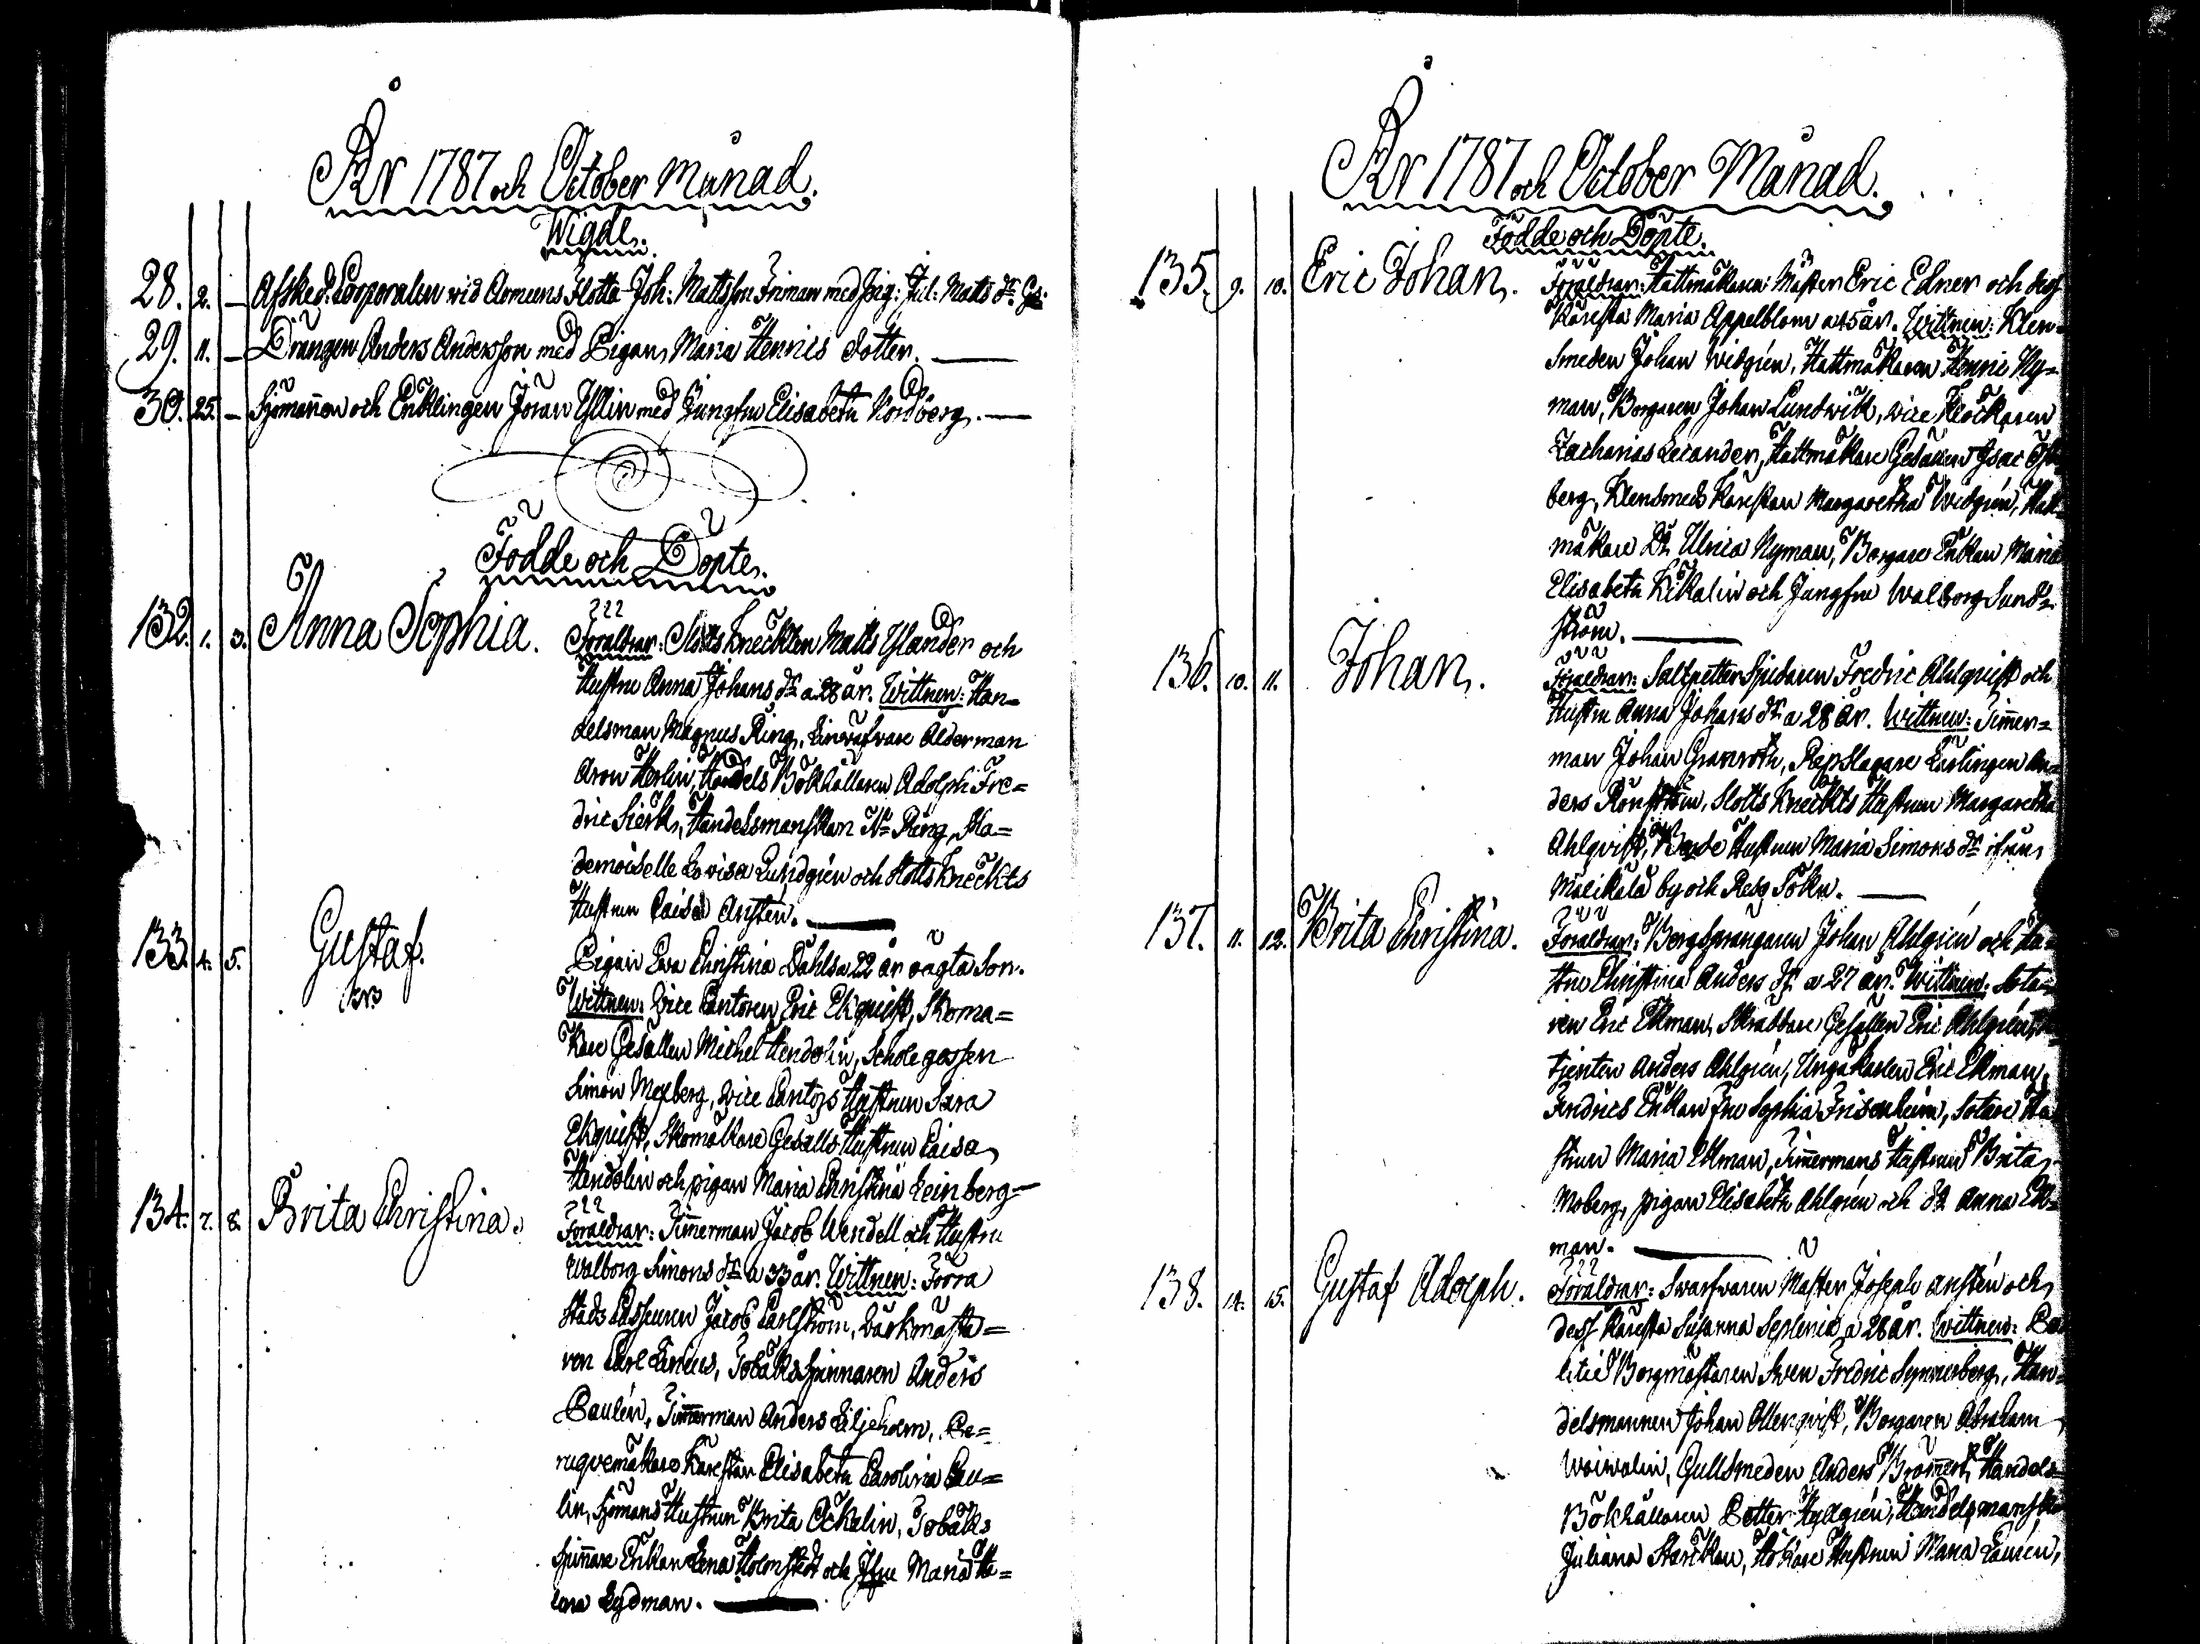 År 1787 och October månad.
Wigde.
28. 2. — Afsked: Corporalen wid Armeens Flotta Joh: Mattsson Friman med Pig:
29. 11. — Drängen Anders Andersson med Pigan Maria Henrics dotter. —
30. 25. — Sjömannen och Enklingen Jöran Yllin med Jungfru Elisabeth Nordberg. —
Födde och Döpte.
132. 1. 3. Anna Sophia. Föräldrar: Slotts Knechten Matts Ylander och
Hustru Anna Johans dr a 28 år. Wittnen: Han=
delsman Magnus Ring, Linwäfvare Ålderman
Aron Herlin, Handels Bokhållaren Adolph Fre=
dric Sierk, Handelsmanskan Ring, Ma=
demoiselle Lovisa Lundgrén och Slotts Knechts
Hustrun Caisa Anstén. —
133. 4. 5. Gustaf. Pigan Ewa Christina Dahls a 22 år oägta Son.
Wittnen: Vice Cantoren Eric Ekquist, Skoma=
kare Gesällen Michel Hendolin, Schole gossen
Simon Mexberg, Vice Cantors Hustrun Sara
Ekquist, Skomakare Gesälls Hustrun Caisa
Hendolin och pigan Maria Christina Leinberg —
134. 7. 8. Brita Christina. Föräldrar: Timmerman Jacob Wendell och Hustru
Walborg Simons dr a 33 år. Wittnen: Förra
Stads Casseuren Jacob Carlström, Bärkmästa=
ren Carl Lineus, Tobaks Spinnaren Anders
Paulin, Timmerman Anders Liljeholm, Pe=
ruqvemakare Kärestan Elisabeth Carolina Pau=
lin, Sjömans Hustrun Brita Ockelin, Tobaks
Spinnare Enkan Lena Holmstedt och Jfru Maria He=
lena Lydman. —
År 1787 och October Månad.
Födde och Döpte.
135. 9. 10. Eric Johan. Föräldrar: Hattmakaren Mäster Eric Edner och dess
Käresta Maria Appelblom a 45 år. Wittnen: Klen=
smeden Johan Widgrén, Hattmakaren Henric Ny=
man, Borgaren Johan Lundwik, vice Klockaren
Zacharias Lecander, Hattmakare Gesällen Isac
berg, Klensmeds Kärestan Margaretha Widgrén, Hatt=
makare Do Ulrica Nyman, Borgare Enkan Maria
Elisabeth Kikalin och Jungfru Walborg Sund=
ström. —
136. 10. 11. Johan. Föräldrar: Saltpetter Sjudaren Fredric Ahlquist och
Hustru Anna Johans dr a 28 år. Wittnen: Timmer=
man Johan Granroth, Repslagare Lärlingen An=
ders Rönström, Slotts Knechts Hustrun Margaretha
Ahlqvist, Bonde Hustrun Maria Simons dr ifrån
Mälikälä by och Reso Sokn. —
137. 11. 12. Brita Christina. Föräldrar: Bergsprängaren Johan Ahlgrén och Hu=
stru Christina Anders dr a 27 år. Wittnen: Sota=
ren Eric Ekman, Skräddare Gesällen Eric Ahlgrén,
tjenten Anders Ahlgrén, Ungakarlen Eric Ekman,
Fendrics Enkan Fru Sophia Frisenheim, Sotare Hu=
strun Maria Ekman, Timmermans Hustrun Brita
Moberg, pigan Elisabeth Ahlgrén och do Anna Ek=
man. —
138. 14. 15. Gustaf Adolph. Föräldrar: Swarfwaren Mäster Joseph Anstén och
dess Käresta Susanna Seplenia a 28 år. Wittnen: Po
litie Borgmästaren Swen Fredric Synnerberg, Han=
delsmannen Johan Ollenqvist, Borgaren Abraham
Waiwalin, Gullsmeden Anders Brommert, Handels=
Bokhållaren Petter Hydgrén, Handelsmanskan
Juliana Starckan, Hökare Hustrun Maria Lauren,